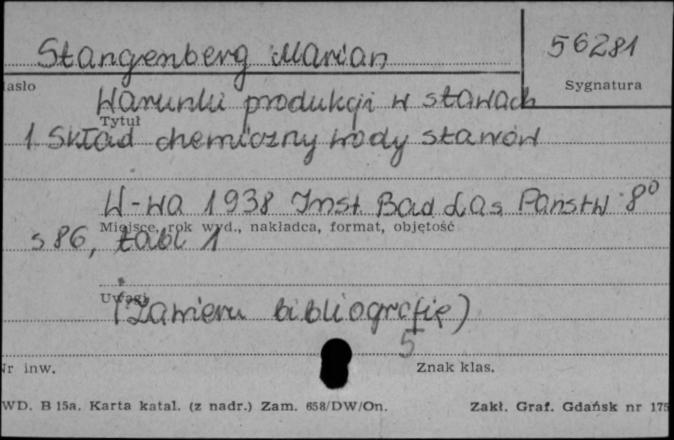 Stangenberg Marian
56281
asło
Sygnatura
Warunki produkcji w stawach
Tytuł
1 Skład chemiczny wody stawów
W-wa 1938 Inst Bad Las Państw 8°
Miejsce, rok wyd., nakładca, format, objętość
s 86, tabl 1
Uwagi
(Zawiera bibliografię)
5
Nr inw.
Znak klas.
WD. B 15a. Karta katal. (z nadr.) Zam. 658/DW/On.
Zakł. Graf. Gdańsk nr 175